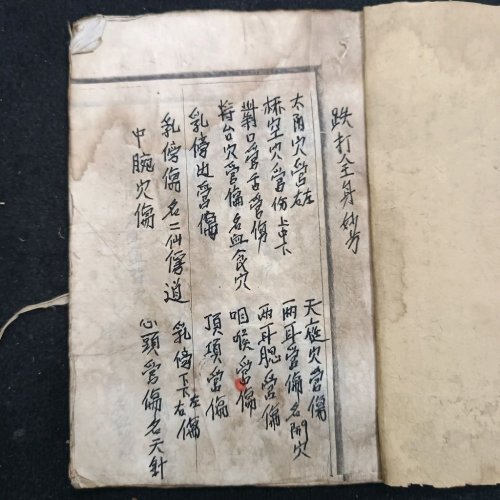 跌打全身妙方
太阳穴受左右 天庭穴受傷
穴受伤上中下 两耳受傷名開穴
受舌受伤 两耳腮受傷
将台穴受傷名血食穴 咽喉受傷
乳傍边受傷 頂項受傷
乳傍傷名二仙傳道 乳傍下下左右傷
中腕穴傷 心頭受傷名天針